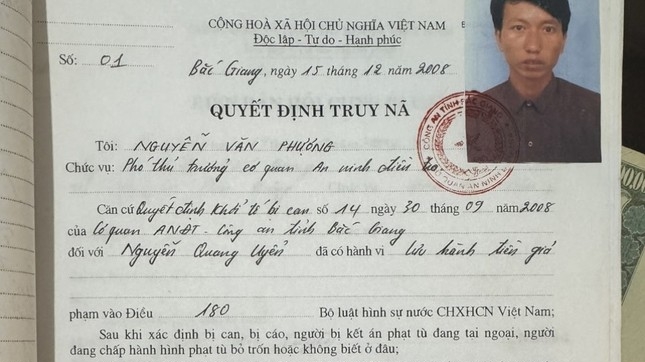 CỘNG HOÀ XÃ HỘI CHỦ NGHĨA VIỆT NAM
Độc lập - Tự do - Hạnh phúc
Số: 01
Bắc Giang, ngày 15 tháng 12 năm 2008
QUYẾT ĐỊNH TRUY NÃ
Tôi: NGUYỄN VĂN PHƯỢNG
Chức vụ: Phó thủ trưởng cơ quan An ninh điều
Căn cứ Quyết định Khởi tố bị can số 14 ngày 30 tháng 09 năm 2008
của Cơ quan ANĐT - Công an tỉnh Bắc Giang
đối với Nguyễn Quang Uyển đã có hành vi Lưu hành tiền giả
phạm vào Điều 180 Bộ luật hình sự nước CHXHCN Việt Nam;
Sau khi xác định bị can, bị cáo, người bị kết án phạt tù đang tại ngoại, người
đang chấp hành hình phạt tù bỏ trốn hoặc không biết ở đâu;